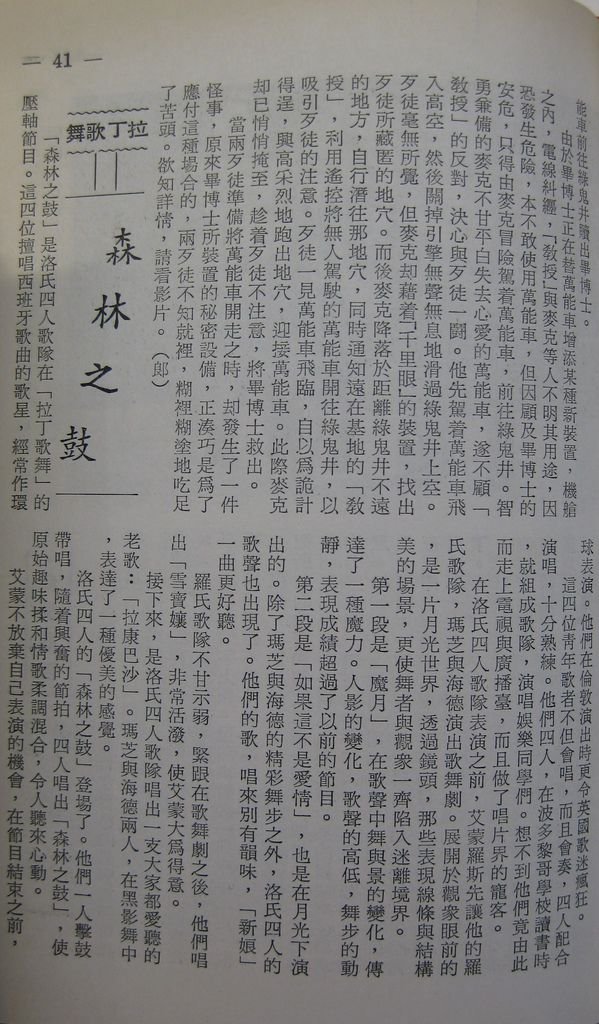 — 41 —
能車前往綠鬼井贖出畢博士。
由於畢博士正在替萬能車增添某種新裝置，機艙
之內，電線糾纒，「敎授」與麥克等人不明其用途，因
恐發生危險，本不敢使用萬能車，但因顧及畢博士的
安危，只得由麥克冒險駕着萬能車，前往綠鬼井。智
勇兼備的麥克不甘平白失去心愛的萬能車，遂不顧「
敎授」的反對，決心與歹徒一鬪。他先駕着萬能車飛
入高空，然後關掉引擎無聲無息地滑過綠鬼井上空。
歹徒毫無所覺，但麥克却藉着「千里眼」的裝置，找出
歹徒所藏匿的地穴。而後麥克降落於距離綠鬼井不遠
的地方，自行潛往那地穴，同時通知遠在基地的「敎
授」，利用遙控將無人駕駛的萬能車開往綠鬼井，以
吸引歹徒的注意。歹徒一見萬能車飛臨，自以爲詭計
得逞，興高采烈地跑出地穴，迎接萬能車。此際麥克
却已悄悄掩至，趁着歹徒不注意，將畢博士救出。
當兩歹徒準備將萬能車開走之時，却發生了一件
怪事，原來畢博士所裝置的秘密設備，正湊巧是爲了
應付這種場合的，兩歹徒不知就裡，糊裡糊塗地吃足
了苦頭。欲知詳情，請看影片。（郞）
拉丁歌舞
森林之鼓
「森林之鼓」是洛氏四人歌隊在「拉丁歌舞」的
壓軸節目。這四位擅唱西班牙歌曲的歌星，經常作環
球表演。他們在倫敦演出時更令英國歌迷瘋狂。
這四位靑年歌者不但會唱，而且會奏，四人配合
演唱，十分熟練。他們四人，在波多黎哥學校讀書時
，就組成歌隊，演唱娛樂同學們。想不到他們竟由此
而走上電視與廣播臺，而且做了唱片界的寵客。
在洛氏四人歌隊表演之前，艾蒙羅斯先讓他的羅
氏歌隊，瑪芝與海德演出歌舞劇。展開於觀衆眼前的
，是一片月光世界，透過鏡頭，那些表現線條與結構
美的場景，更使舞者與觀衆一齊陷入迷離境界。
第一段是「魔月」，在歌聲中舞與景的變化，傳
達了一種魔力。人影的變化，歌聲的高低，舞步的動
靜，表現成績超過了以前的節目。
第二段是「如果這不是愛情」，也是在月光下演
出的。除了瑪芝與海德的精彩舞步之外，洛氏四人的
歌聲也出現了。他們的歌，唱來別有韻味，「新娘」
一曲更好聽。
羅氏歌隊不甘示弱，緊跟在歌舞劇之後，他們唱
出「雪寶孃」，非常活潑，使艾蒙大爲得意。
接下來，是洛氏四人歌隊唱出一支大家都愛聽的
老歌：「拉康巴沙」。瑪芝與海德兩人，在黑影舞中
，表達了一種優美的感覺。
洛氏四人的「森林之鼓」登場了。他們一人擊鼓
帶唱，隨着興奮的節拍，四人唱出「森林之鼓」，使
原始趣味揉和情歌柔調混合，令人聽來心動。
艾蒙不放棄自己表演的機會，在節目結束之前，